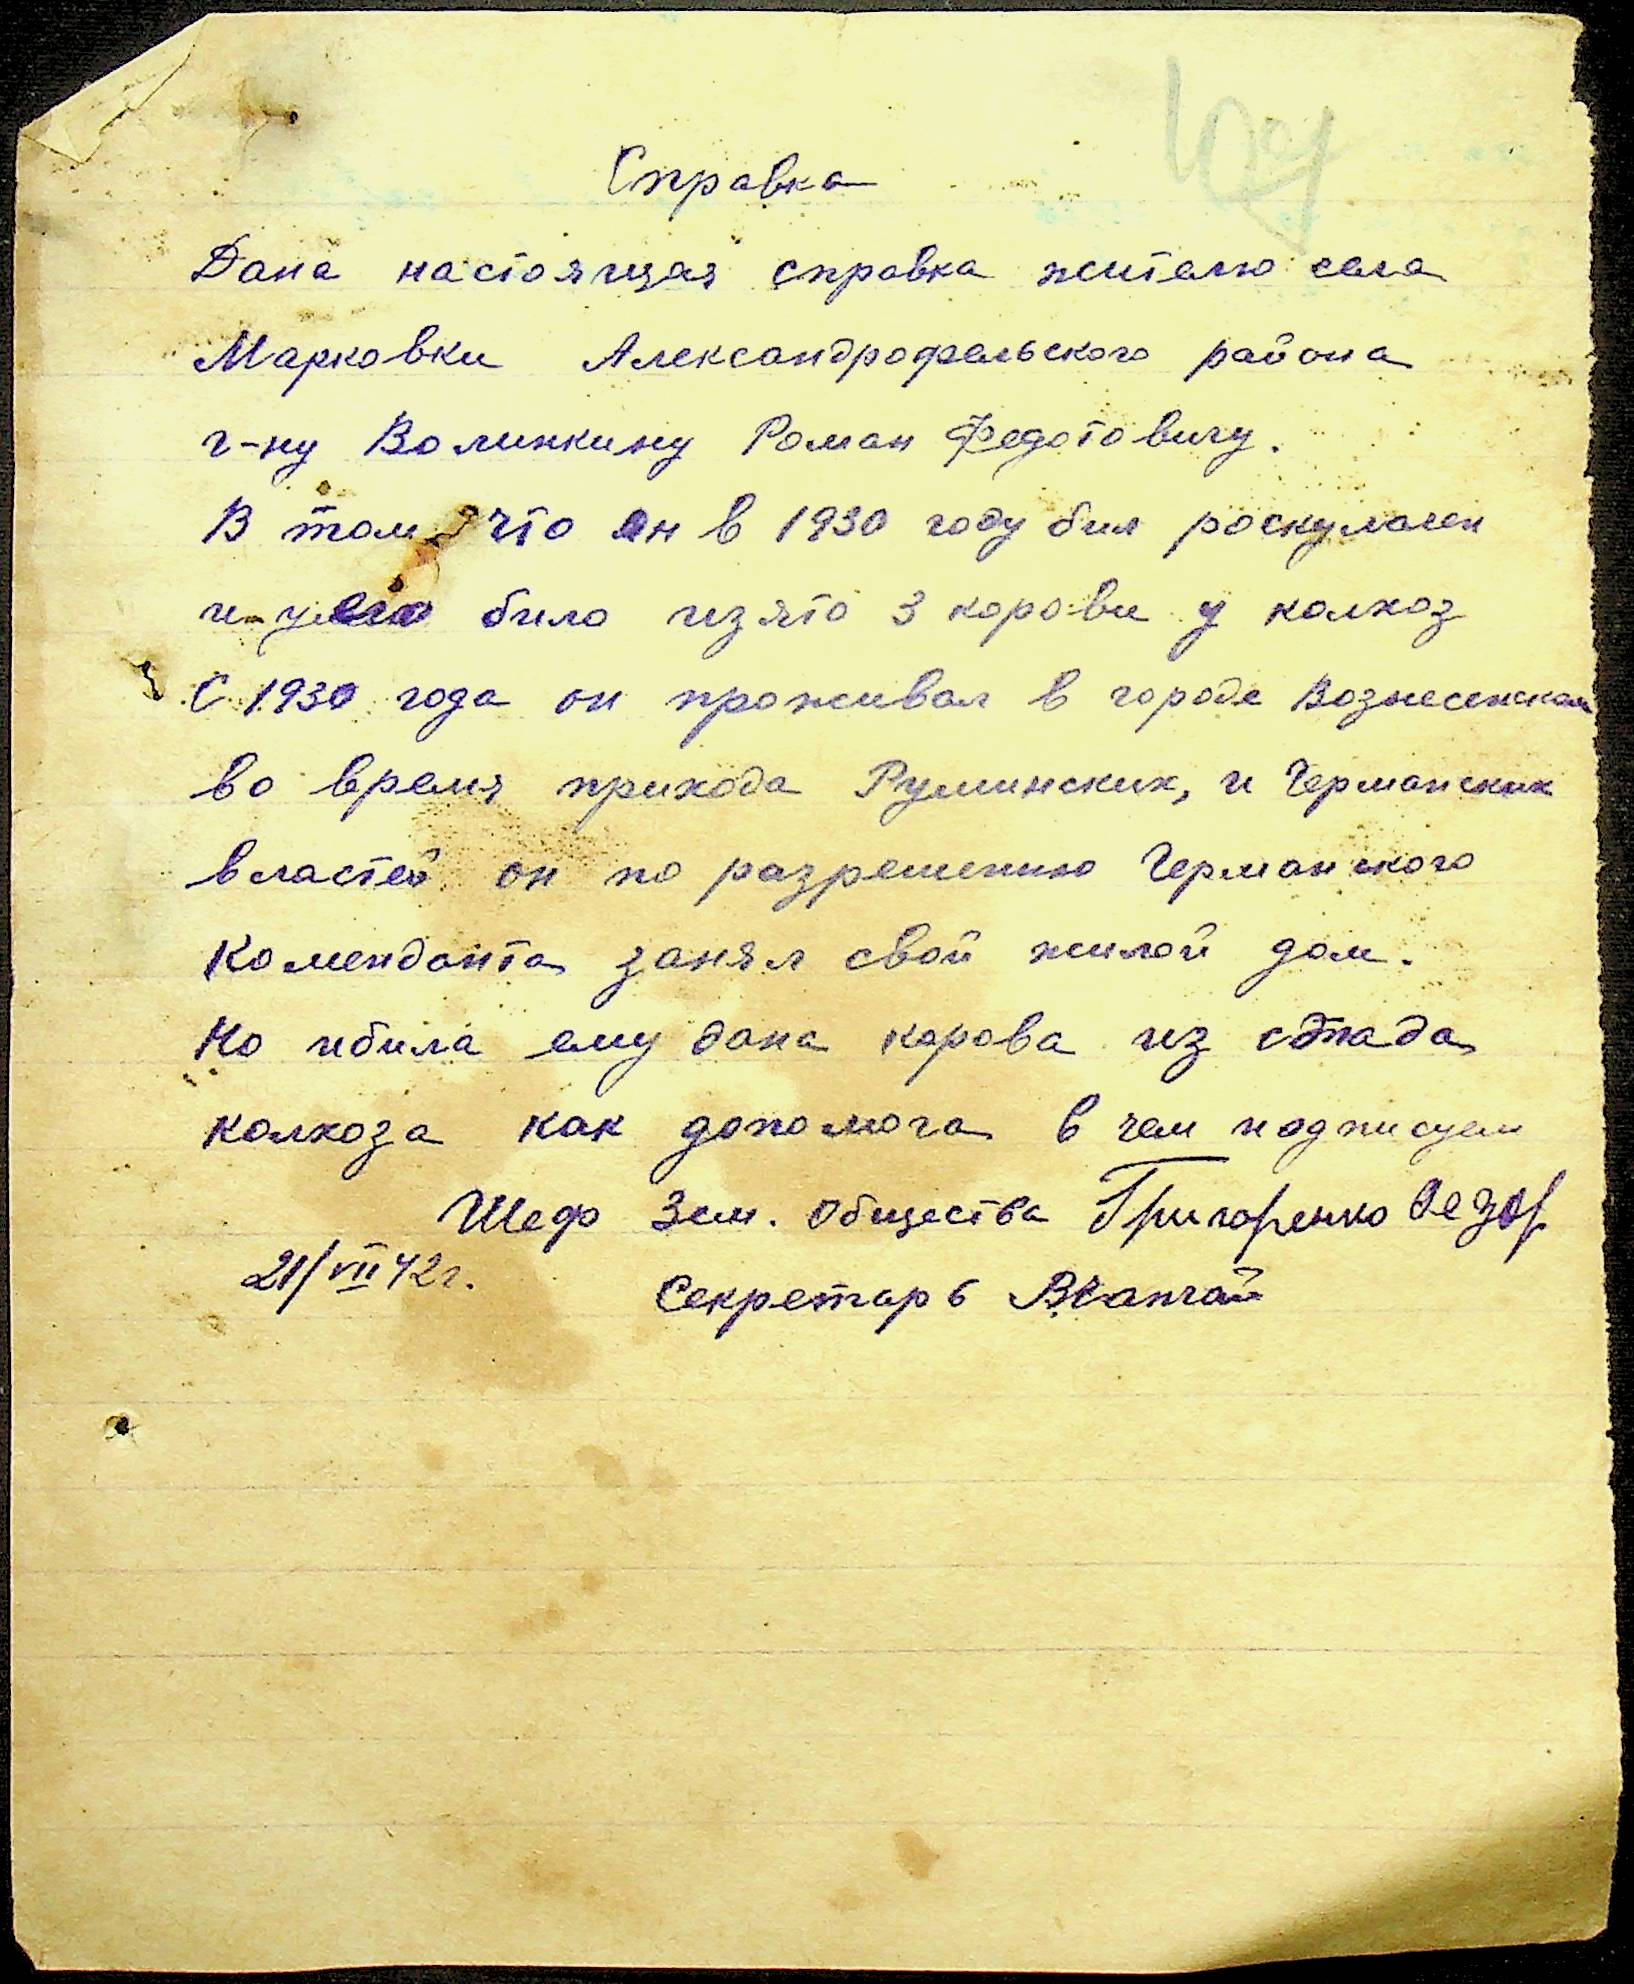 Справка
Дана настоящая справка жителю села
Марковки Александрофельского района
г-ну Волинкину Роман Федотовичу.
В том что он в 1930 году бил роскулачен
и у его било изято 3 корови у колхоз
С 1930 года он проживал в городе Вознесенском
во время прихода Руминских, и Германских
властей он по разрешению Германского
Коменданта занял свой жилой дом.
Но и била ему дана корова из стада
колхоза как допомога в чем подписуем
Шеф Зем. Общества Григоренко
21/VII 42г.
Секретарь